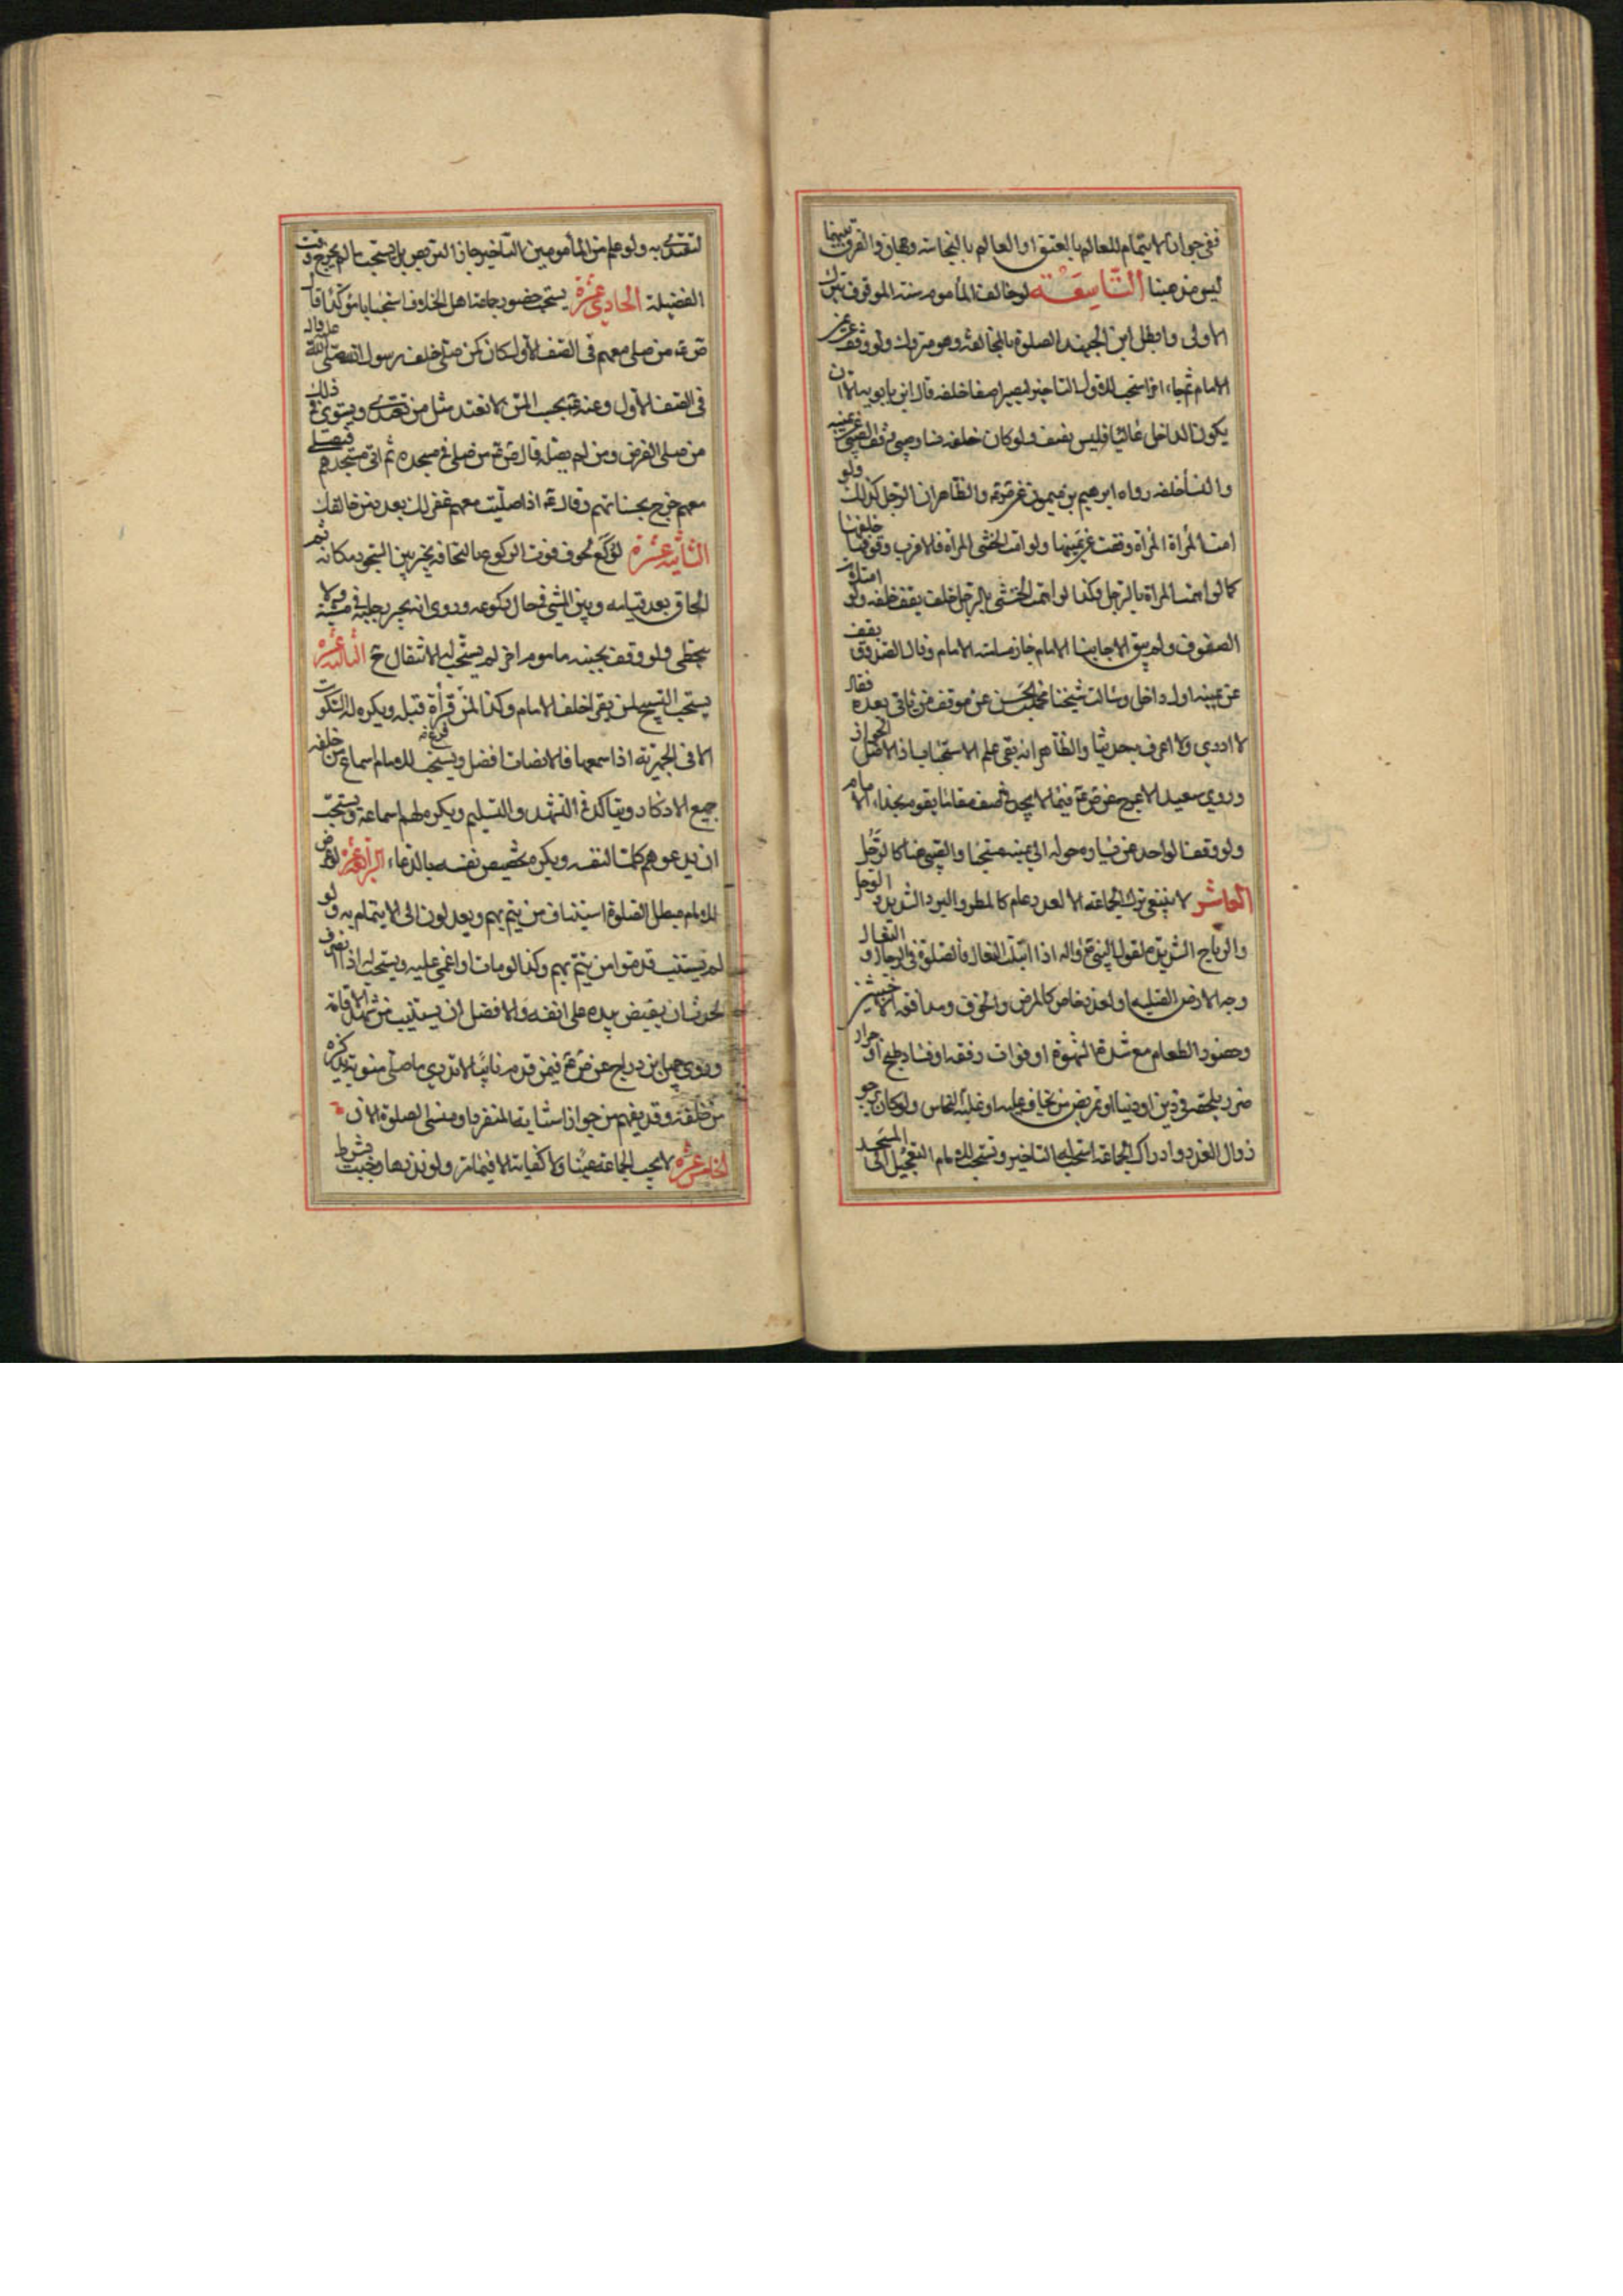 ففى جواز الايتمام للعالم بالعتق او العالم بالنجاسة وجهان والفرق بينهما
ليس مذهبنا التاسعة لو خالف المأموم سنة الموقف ترك
الاولى وابطل ابن الجنيد الصلوة بالمخالفة وهو متروك ولو وقف عن يمين
الامام ثم جاء اخر استحب للاول التاخير ليصيرا صفا خلفه قال ابن بابويه الا ان
يكون الداخل فليس بصف ولو كان خلفه نساء وصبى وقف الصبى عن يمينه
والنسأ خلفه رواه ابرهيم بن ميمون عن ص ع والظاهر ان الرجل كذلك ولو
امت المرأة المرأة وقفت عن يمينها ولو امت الخنثى المراة فالاقرب وقوفها خلفها
كما لو ائتمت المراة بالرجل وكذا لو ائتمت الخنثى بالرجل خلف يقف خلفه ولو امتلأت
الصفوف ولم يبق الا جانبا الامام جاز مسامتة الامام وقال الصدوق يقف
عن يمينه اول داخل وسالت شيخنا محمد بن الحسن عن موقف من ياتى بعده فقال
لا ادرى ولا اعرف به حديثا والظاهر انه يبقى علم الاستحباب اذ الاصل الجواز
وروى سعيد الاعرج عن ص ع فيمن لا يجد فى الصف مقاما يقوم بحذاء الامام
ولو وقف الواحد عن يساره حوله الى يمينه مستحبا والصبى هنا كالرجل
العاشر لا ينبغى ترك الجماعة الا لعذر عام كالمطر والبرد الشديد والوحل
والرياح الشديدة لقول النبى ص واله اذا ابتلت النعال فالصلوة فى الرحال والنعال
وجه الارض الصلبة او لعذر خاص كالمرض والخوف ومدافعة الاخبثين
وحضور الطعام مع شدة الشهوة او فوات رفقة او فساد طبخ او حراز
ضرر يلحقه فى دين او دنيا او تمريض من يخاف عليه او غلبة النعاس ولو كان يرجو
زوال العذر وادراك الجماعة استحب له التاخير وتستحب للامام التعجيل الى المسجد
لتقتدى به ولو علم من المأمومين التاخير جاز التربص بل يستحب ما لم يخرج وقت
الفضيلة الحادى عشرة يستحب حضور جماعة اهل الخلاف استحبابا مؤكدا قال
ص ع من صلى معهم فى الصف الاول كان كمن صلى خلف رسول الله صلى الله عليه واله
فى الصف الاول وعنه ع يحسب لك اذا لم تقتد مثل من تقتدى ويستوى فى ذلك
من صلى الفرض ومن لم يصله قال ص ع من صلى فى مسجده ثم اتى مسجدهم فصلى
معهم خرج بحسناتهم وقال ع اذا صليت معهم غفر لك بعدد من خالفك
الثانية عشرة لو ركع لخوف فوت الركوع عنه التحاقه تخير بين السجود مكانه ثم
لحاق بعد قيامه وبين المشى فى حال ركوعه وروى انه يجر رجليه فى مشيه ولا
يتخطى ولو وقف بجنبه ماموم اخر لم يستحب له الانتقال ح الثالثة عشرة
يستحب التسبيح لمن يقرا خلف الامام وكذا لمن فرغ قرأة قبله ويكره له السكوت
الا فى الجهرية اذا سمعها فالانصات افضل ويستحب للامام اسماع من خلفه
جميع الاذكار ويتاكد فى التشهد والتسليم ويكره لهم اسماعه ويستحب
ان يدعو لهم كما لنفسه ويكره تخصيص نفسه بالدعاء الرابعة عشرة لو عرض
للامام مبطل الصلوة استناب من يتم بهم ويعدلون الى الايتمام به ولو
لم يستنب قدموا من يتم بهم وكذا لو مات او اغمى عليه ويستحب له اذا انصرف
لحدث ان يقبض بيده على انفه والافضل ان يستنيب من شهد الاقامة
وروى جميل بن دراج عن ص ع فيمن قدم نائبا لا يدرى ما صلى قبله يذكره
من خلفه وقد يفهم من جواز استنابة المنفرد او منسى الصلوة الان
الخامسة عشرة لا يجب الجماعة عينا ولا كفاية الا فيما مر ولو نذرها وجبت بشرط